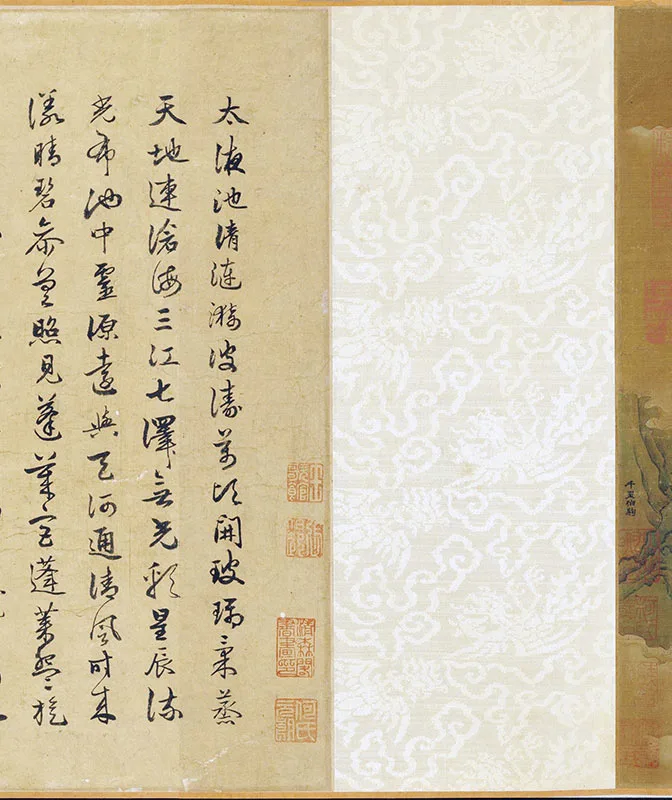 太液池清漣漪波濤萬頃開玻璃氣蒸
天地連滄海三江七澤無光彩星辰流
光布池中靈源遠與天河通清風時來
漾晴碧照見蓬萊宮蓬萊
清森閣書畫印
何氏元朗
千里伯駒